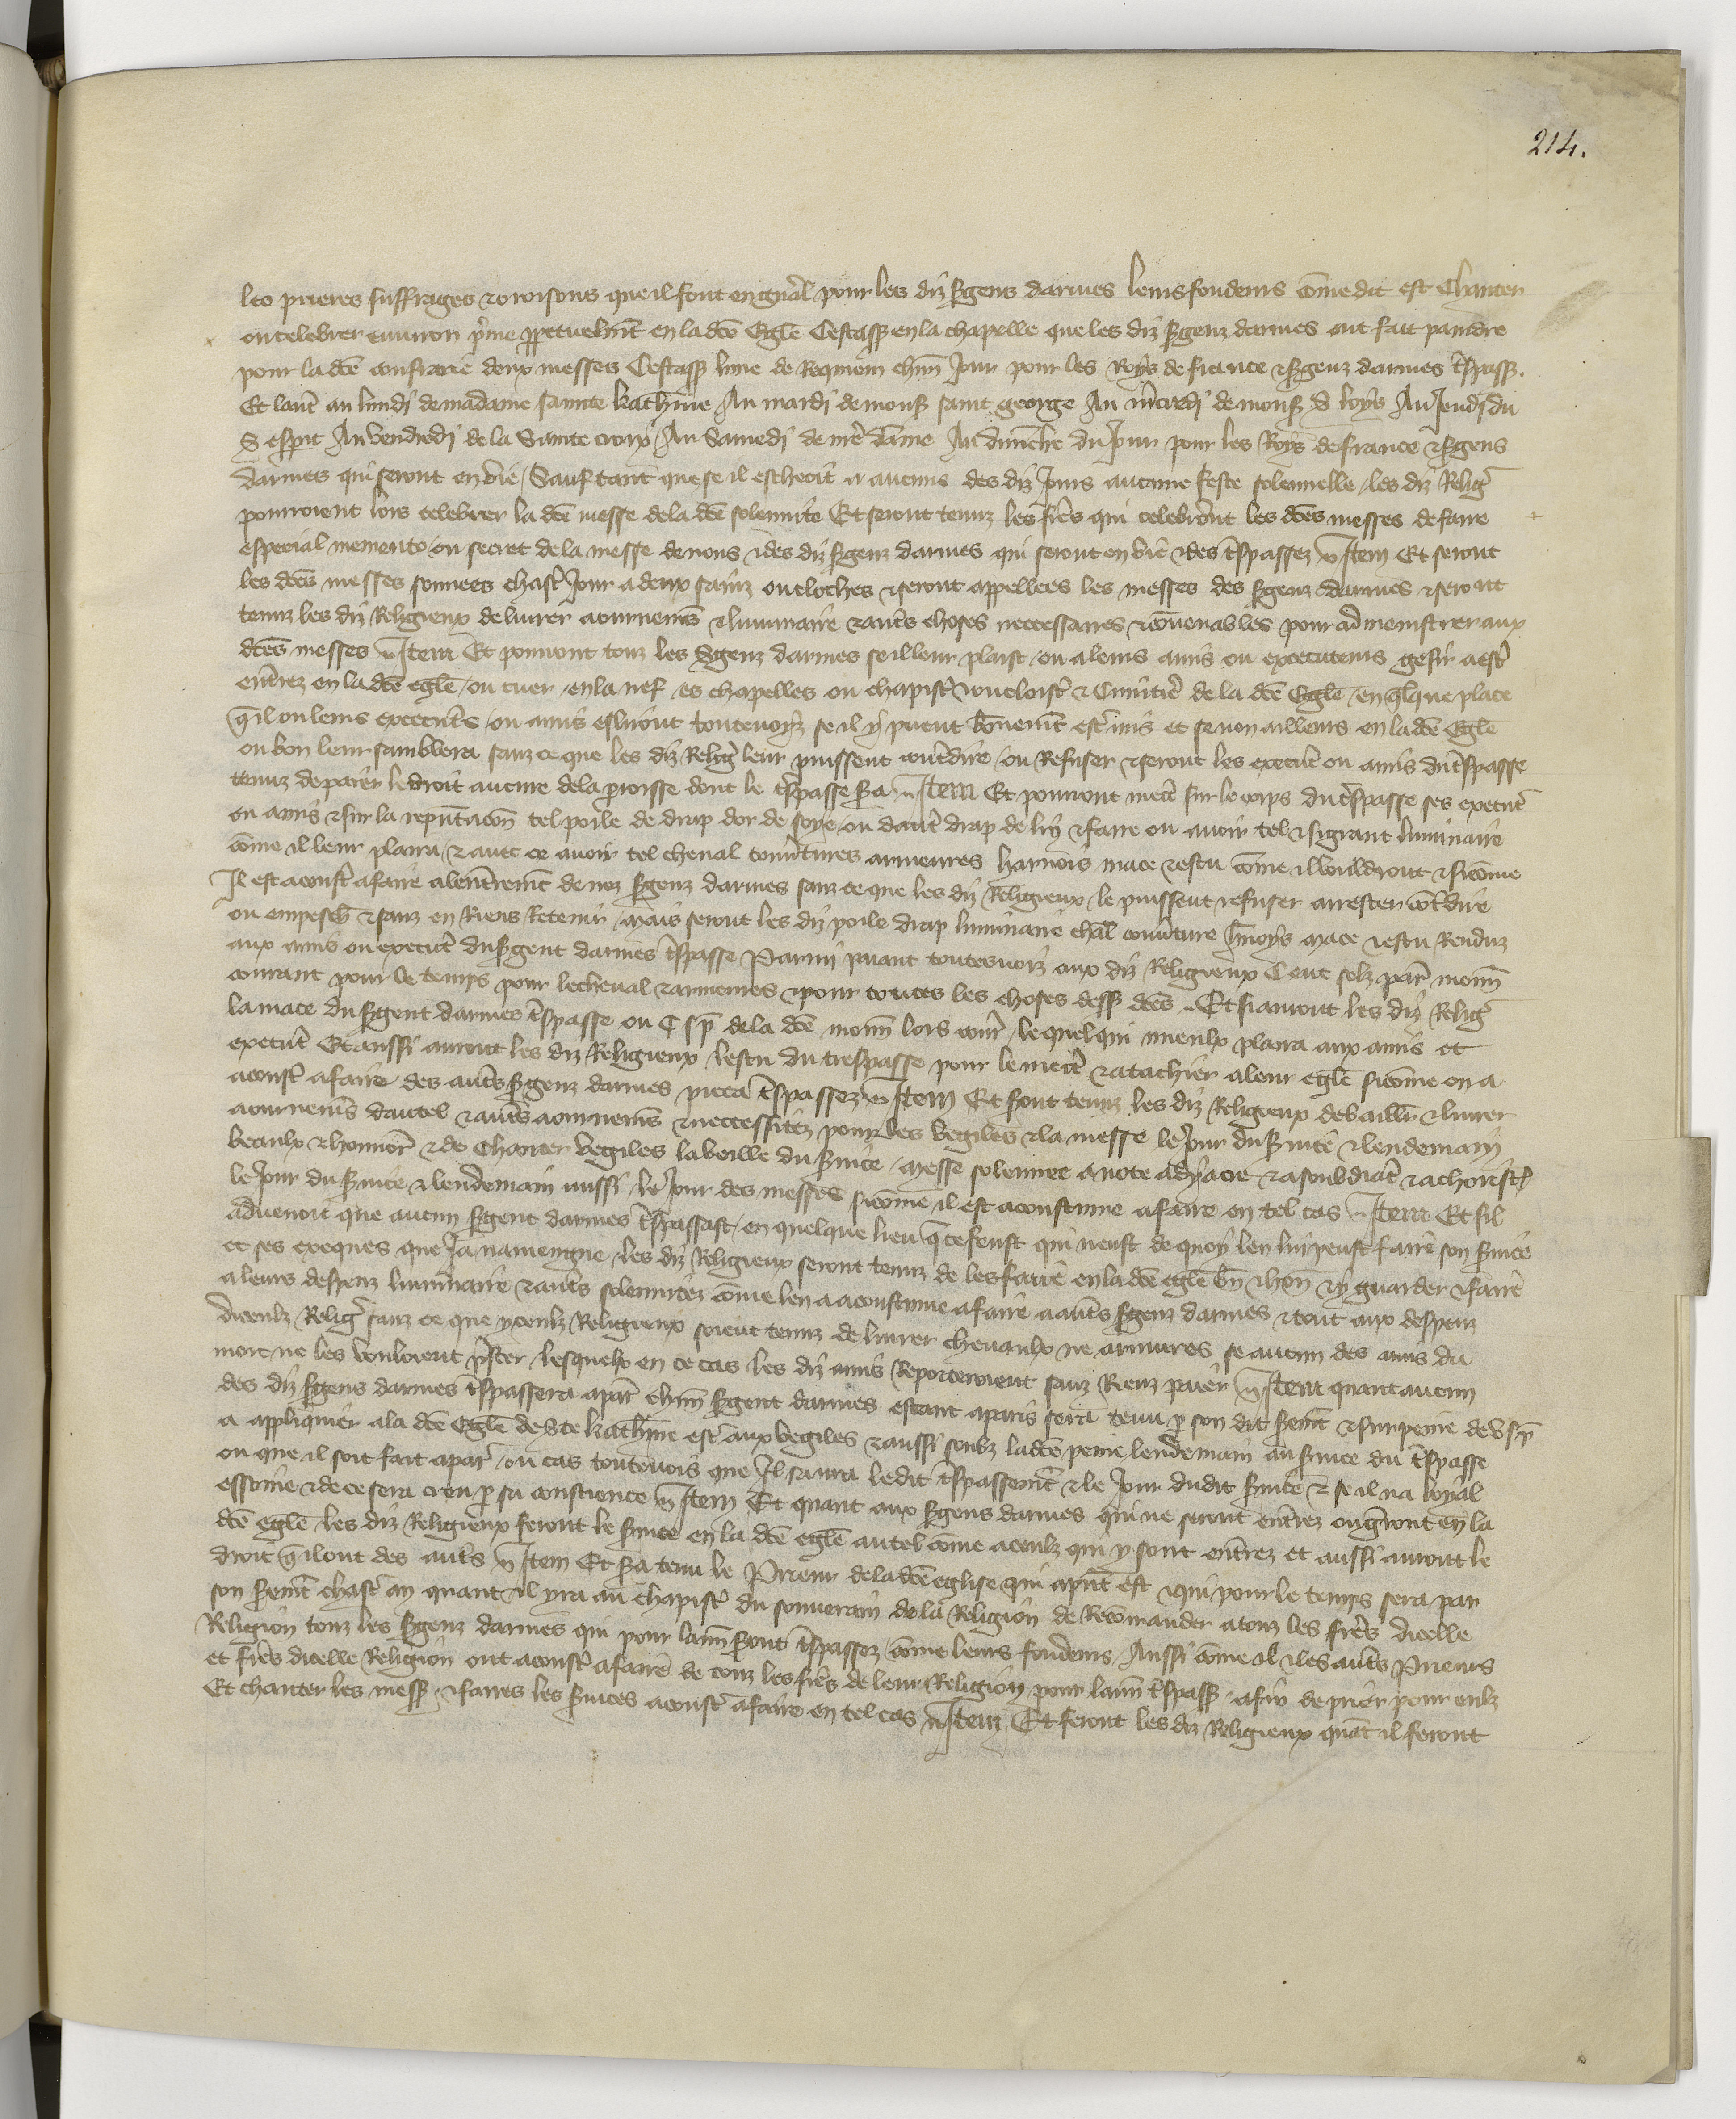 214.
les prieres suffrages & oroisons que il font en gñal pour les diz sgens darmes leurs fondeurs cõme dit est Chanter
ou celebrer environ pme ppetuelmt en la dce Egle Cestass en la chapelle que les diz sgenz darmes ont fait paindre
pour la dce confrarie deux messes Cestass lune de Requiem chun Jour pour les Roys de france & sgenz darmes tspass.
Et laut au lundi de madame sainte kathine Au mardi de mons saint george Au mcredi de mons S loys Au Jeudi du
S esprit Au vendredi de la Sainte croix Au Samedi de nre dame Au dimche du Jour pour les Roys de france & sgens
darmes qui seront en vie / Sauf tant que se il escheoit a aucuns des diz Jours aucune feste solennelle / les diz Relig
pourroient lors celebrer la dce messe de la dce solennite Et seront tenuz les fres qui celebront les dces messes de faire
especial memento / ou secret de la messe de nous & des diz sgenz darmes qui seront en vie & des tspassez Item Et seront
les dces messes sonnees chast Jour a deux sainz ou cloches & seront appellees les messes des sgenz darmes & seront
tenuz les diz Religieux de livrer aournemens & luminaire & auts choses neccessaires & covenables pour admenistrer aux
dces messes Item Et pourront touz les Sgenz darmes se il leur plaist / ou a leurs amis ou executeurs gesir & estre
entrez en la dce egle / ou cuer / en la nef / es chapelles ou chapist ou cloist & Cimitie de la dce Egle / en qlque place
q il ou leurs executrs / ou amis esliront toutevoiz se il y puent bonemt est mis et se non ailleurs en la dce Egle
ou bon leur semblera sanz ce que les diz Relig leur puissent contdire / ou Refuser & seront les execut ou amis du tspasse
tenuz de paier le droit au cure de la paroisse dont le tspasse sa Item Et pourront mect sur le corps du tspasse ses execut
ou amis & sur la reputacon tel poile de drap dor de soye / ou daut drap de lin & faire ou avoir tel & si grant luminaire
cõme il leur plaira / & avec ce avoir tel cheval covtures armeures harnois mace & escu cõme il vouldront & sicõme
Il est acoust a faire a lentremt de noz sgenz darmes sanz ce que les diz Religieux le puissent refuser arrester cotdire
ou empesch & sanz en Riens Retenir / mais seront les diz poile drap luminaire chal covture hnoys mace & escu Renduz
aux amis ou execut du sgent darmes tspasse Parmi paiant toutesvoiz aux diz Religieux Cent solz par monn
courant pour le temps pour le cheval & armeures & pour toutes les choses dess dces Et si auront les diz Relig
la mace du sgent darmes tspasse ou C s p de la dce monn lors cour / lequel qui mieulx plaira aux amis et
execut Et aussi auront les diz Religieux lescu du trespasse pour le mect & atachier a leur egle sicõme on a
acoust a faire des auts sgenz darmes pieca tspassez Item Et sont tenuz les diz Religieux de baillr & livrer
aournems dautel & auts aournems & neccessitez pour les vegiles & la messe le Jour du service & lendemain
beaulx & honnor & de Chanter vegiles la veille du service / messe solennee a note a dyacre & a soubdiac & a choriste
le Jour du service & lendemain aussi / le Jour des messes sicõme il est acoustume a faire en tel cas Item Et sil
advenoit que aucun sgent darmes tspassast / en quelque lieu q ce feust qui neust de quoy len lui peust faire son service
et ses exeques que Ja naviengne / les diz Religieux seront tenuz de les faire en la dce egle bn & hon & y guarder & faire
a leurs despenz luminaire & auts solennitez cõme len a acoustume a faire a auts sgenz darmes & tout aux despenz
diceulz Relig sanz ce que yceulz Religieux soient tenuz de livrer chevaulx ne armures se aucun des amis du
mort ne les vouloient pster / lesquelx en ce cas les diz amis Reporteroient sanz Rienz paier Item quant aucun
des diz sgens darmes tspassera a par chun sgent darmes estant a paris sera tenu p son dit serm & sur peine de s p
a appliquier a la dce Egle de Ste kathine est aux vegiles & aussi soubz la dce peine lendemain au service du tspasse
ou que il soit fait a par / ou cas toutevois que Il saura ledit tspassemt & le Jour dudit service & se il na loyal
essoine & de ce sera creu p sa conscience Item Et quant aux sgens darmes qui ne seront entrez ou gront en la
dce egle les diz Religieux feront le service en la dce egle autel cõme a ceulz qui y sont entrez et aussi auront le
droit q il ont des auts Item Et sa tenu le Prieur de la dce eglise qui apnt est & qui pour le temps sera par
son sermt chast an quant il yra au chapist du souverain de la Religion de Recõmander a touz les fres dicelle
Religion touz les sgenz darmes qui pour lann sont tspassez / cõme leurs fondeurs / Aussi cõme il & les auts Prieurs
et fres dicelle Religion ont acoust a faire de touz les fres de leur Religion pour lann tspass / afin de prier pour eulz
Et chanter les mess / & faires les services acoust a faire en tel cas Item Et feront les diz Religieux quat il feront